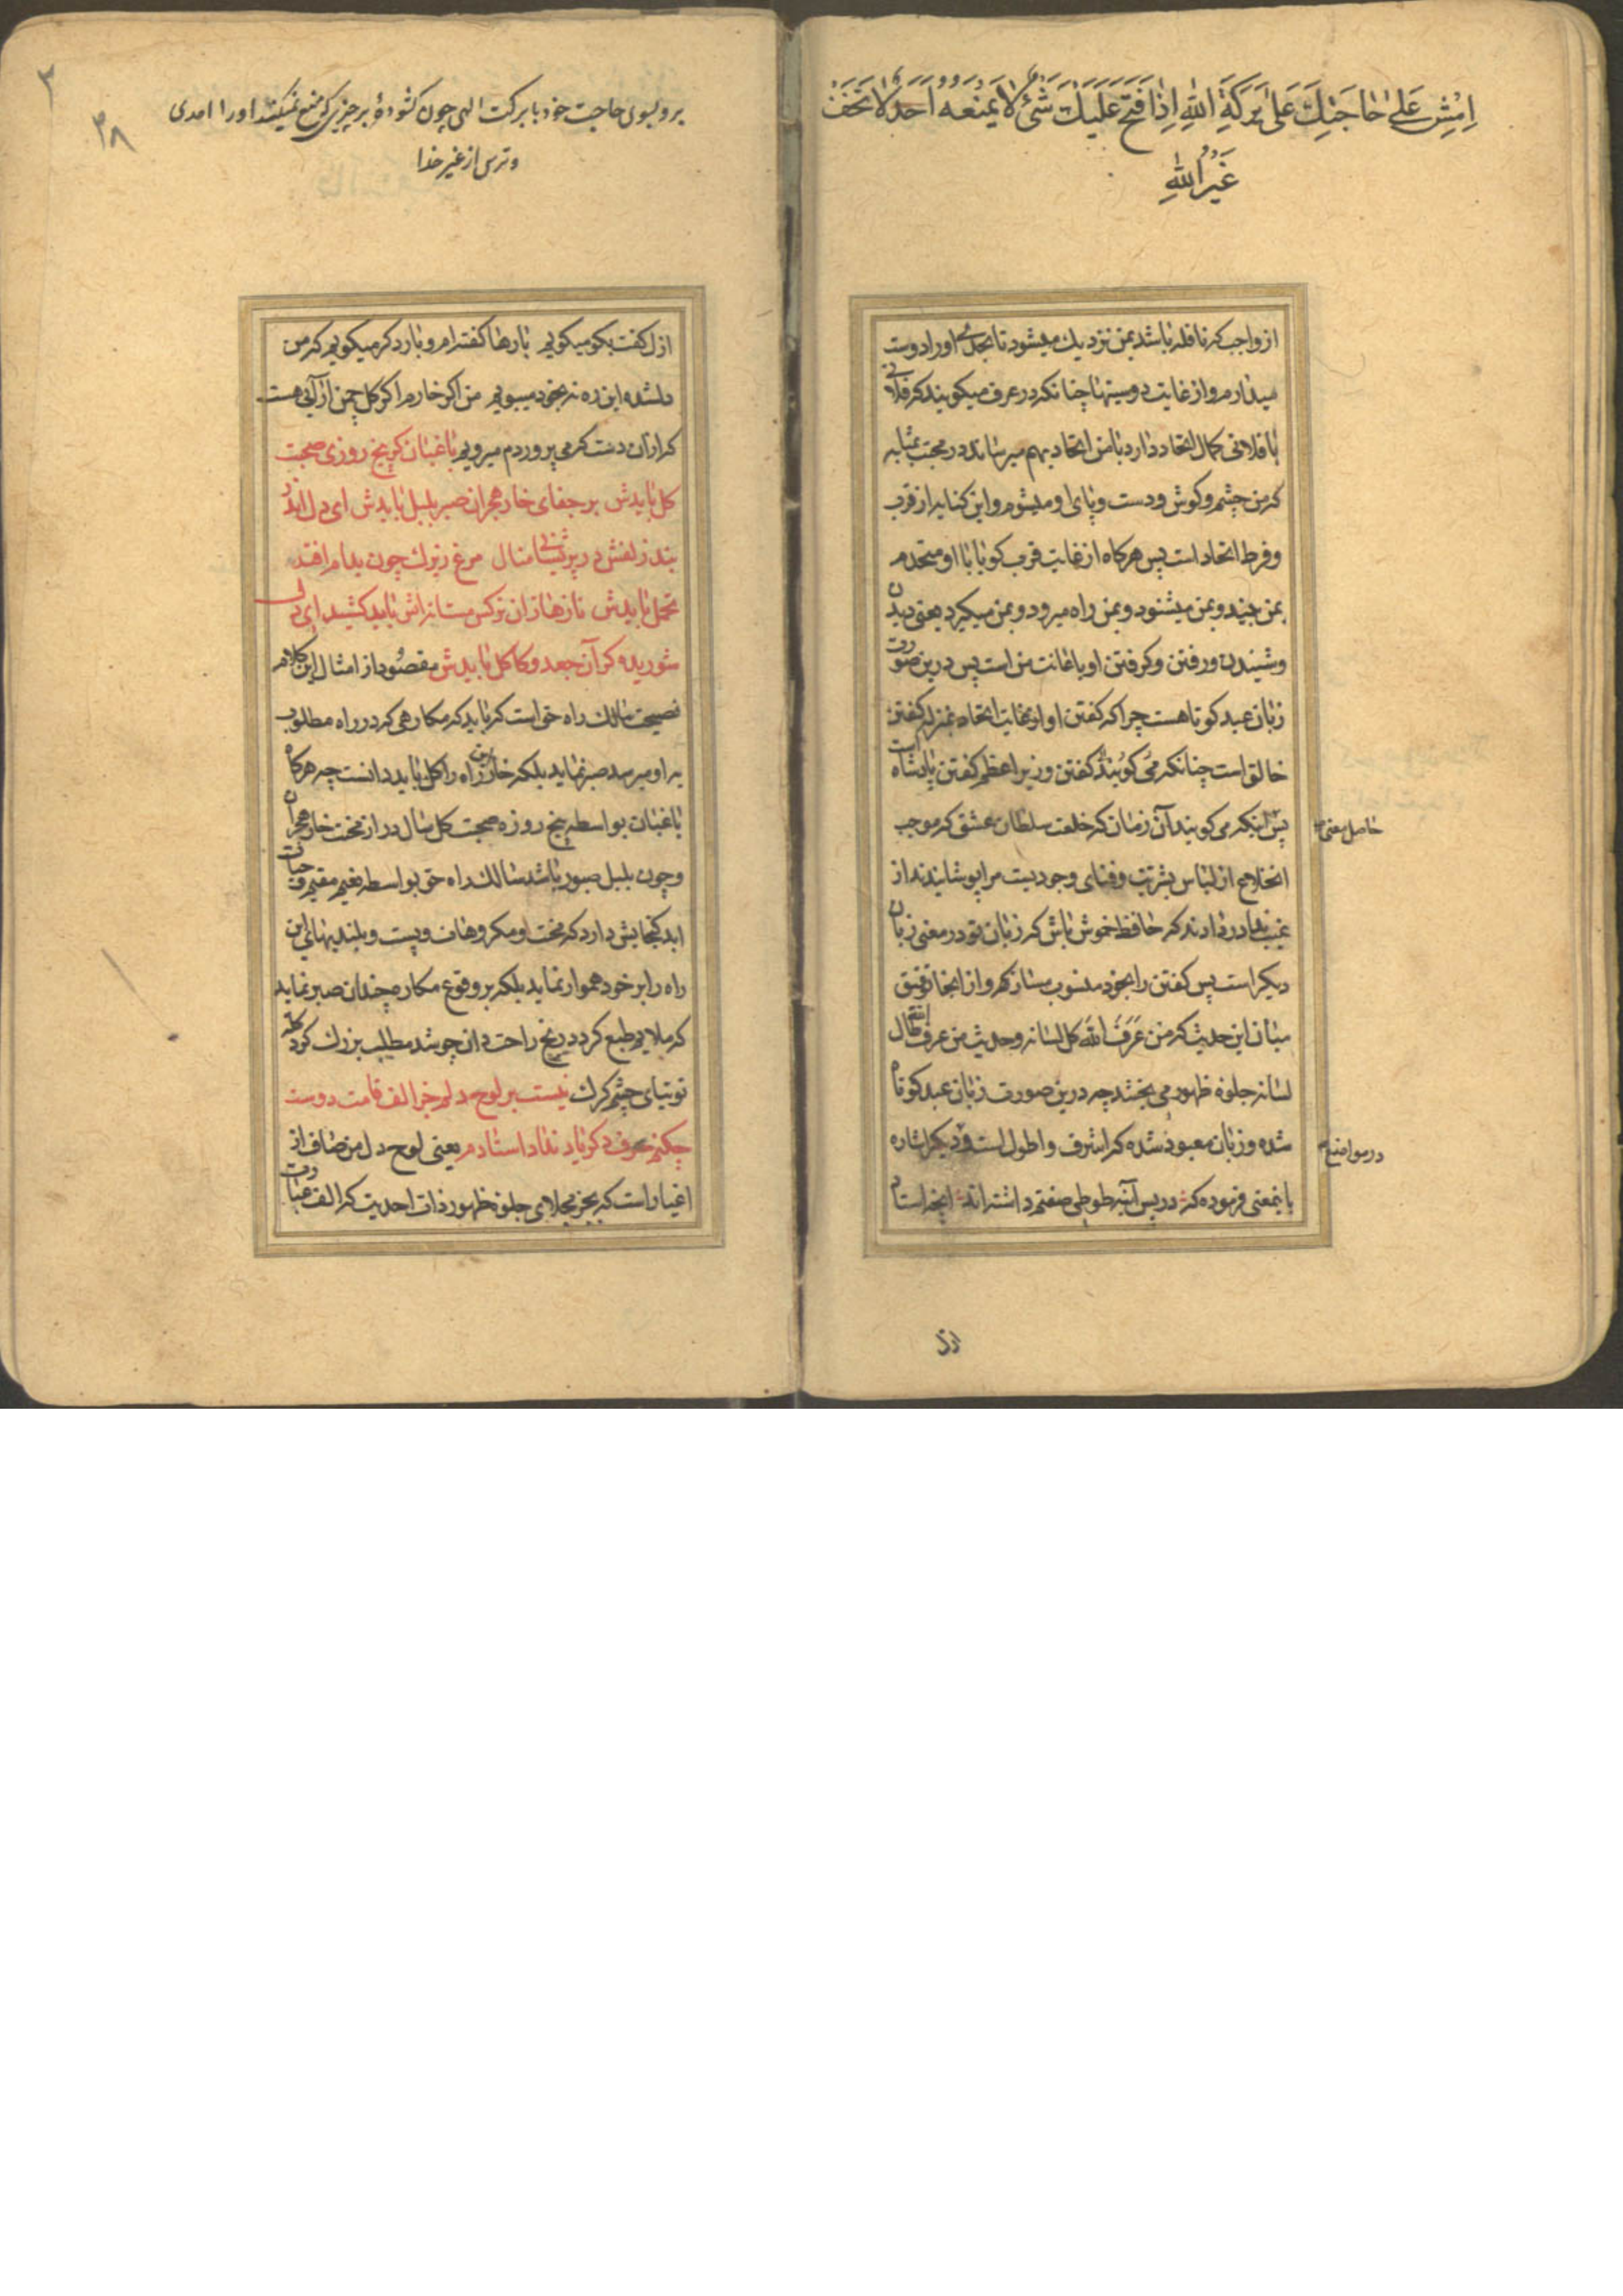 اِمْشِ عَلیٰ حٰاجَتِكَ عَلیٰ بَرَكَةِ اللهِ اِذٰا فَتَحَ عَلَیْكَ شَئٌ لٰا یَمْنَعُهُ اَحَدٌ لٰا تَخَفْ
غَیْرُ اللهِ
از واجب که نافله باشد بمن نزدیك میشود تا بحدی اورا دوست
میدارم و از غایت دوستیها چنانکه در عرف میکویند که فلانی
با فلانی کمال اتحاد دارد با من اتحاد بهم میرساند در محبت بمثابه
که من چشم و کوش و دست و پای او میشوم و این کنایه از قرب
و فرط اتحاد است پس هرکاه از غایت قرب کویا با او متحدم
بمن بیند و بمن میشنود و بمن راه میرود و بمن میکیرد یعنی دیدن
و شنیدن و رفتن و کرفتن او باعانت من است پس درین صورت
زبان عبد کوتاهست چرا که کفتن او از غایت اتحاد بمنزله کفتن
خالق است چنانکه می کویند کفتن وزیر اعظم کفتن پادشاه است
پس اینکه می کویند آن زمان که خلعت سلطان عشق که موجب
حاصل معنی
انخلاع از لباس بشریت و فنای وجودیست مرا پوشانیدند از
غیب ندا در دادند که حافظ خموش باش که زبان تو در معنی زبان
دیکر است پس کفتن را بخود منسوب مساز کهر و از اینجا توفیق
میان این حدیث که من عَرَفَ اللهَ کل لسانه و حدیث من عرف الله طال
لسانه جلوه ظهور می بخشد چه درین صورت زبان عبد کوتاه
شده و زبان معبود شده که اشرف و اطول است و دیکر اشاره
در مواضع
باینمعنی فرموده که در پس آینه طوطی صفتم داشته اند انچه استاد
ازل
۳
۳۸
برو بسوی حاجت خود با برکت الهی چون کشوده بر چیزی که منع نمیکند اورا احدی
و ترس از غیر خدا
ازل کفت بکو میکویم بارها کفته ام و بار دکر میکویم که من
دلشده این ره نه بخود میپویم من اکر خارم اکر کل چمن ارائی هست
که ازان دست که می پروردم میرویم باغبان کر پنج روزی صحبت
کل بایدش بر جفای خار هجران صبر بلبل بایدش ای دل اندر
بند زلفش در پریشانی منال مرغ زیرك چون بدام افتد
تحمل بایدش نازها زان نرکس مستانه اش باید کشید ای دل
شوریده کر آن جعد و کاکل بایدش مقصود از امثال این کلام
نصیحت سالك راه حق است که باید که مکارهی که در راه مطلوب
به او میرسد صبر نماید بلکه خار این راه را کل باید دانست چه هرکاه
باغبان بواسطه پنج روزه صحبت کل سال دراز محنت خار هجران
و چون بلبل صبور باشد سالك راه حق بواسطه نعیم مقیم و حیات
ابد کنجایش دارد که محنت و مکروهات و پست و بلندیهای این
راه را بر خود هموار نماید بلکه بر وقوع مکاره چندان صبر نماید
که ملایم طبع کردد رنج راحت دان چو شد مطلب بزرك کرد کله
توتیای چشم کرك نیست بر لوح دلم جز الف قامت دوست
چکنم حرف دکر یاد نداد استادم یعنی لوح دل من صاف از
اغیار است که بجز مجلای جلوه ظهور ذات احدیت که الف عبارت